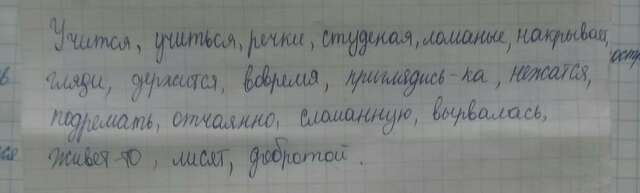 Учится, учиться, речки, студеная, ломаные, накрывая,
гляди, держится, вовремя, приглядись-ка, нежатся,
подремать, отчаянно, сломанную, вырвалась,
живёт-то, лисят, добротой.